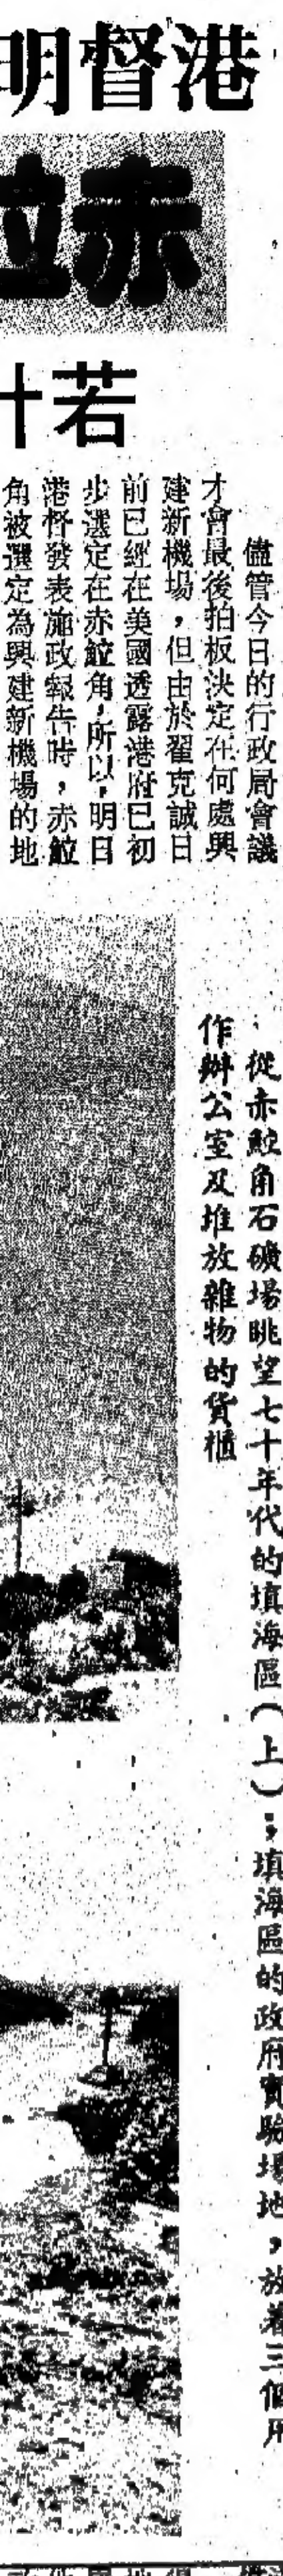 港督明
赤鱲
若
儘管今日的行政局會議
才會最後拍板決定在何處興
建新機場，但由於翟克誠日
前已經在美國透露港府已初
步選定在赤鱲角，所以，明日
港督發表施政報告時，赤鱲
角被選定為興建新機場的地
從赤鱲角石礦場眺望七十年代的填海區（上）；填海區的政府實驗場地，放着三個用
作辦公室及堆放雜物的貨櫃